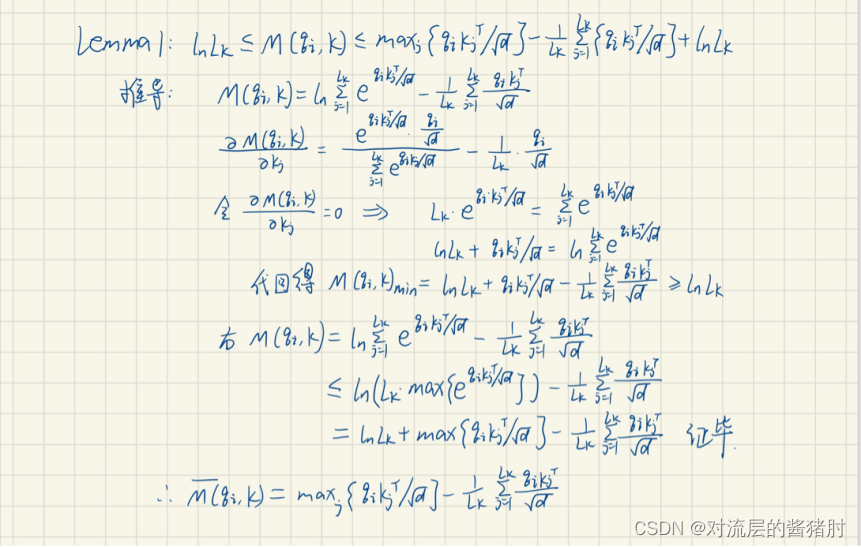 Lemma1: lnL_K ≤ M(q_i,K) ≤ max_j{q_i k_j^T/√d} - 1/L_K ∑_{j=1}^{L_K} {q_i k_j^T/√d} + lnL_K
推导: M(q_i,K) = ln ∑_{j=1}^{L_K} e^{q_i k_j^T/√d} - 1/L_K ∑_{j=1}^{L_K} q_i k_j^T/√d
∂M(q_i,K)/∂k_j = (e^{q_i k_j^T/√d} · q_i/√d) / (∑_{j=1}^{L_K} e^{q_i k_j/√d}) - 1/L_K · q_i/√d
令 ∂M(q_i,K)/∂k_j = 0 ⇒ L_K · e^{q_i·k_j^T/√d} = ∑_{j=1}^{L_K} e^{q_i k_j^T/√d}
lnL_K + q_i k_j^T/√d = ln ∑_{j=1}^{L_K} e^{q_i k_j^T/√d}
代回得 M(q_i,K)_min = lnL_K + q_i k_j^T/√d - 1/L_K ∑_{j=1}^{L_K} q_i k_j^T/√d ≥ lnL_K
右 M(q_i,K) = ln ∑_{j=1}^{L_K} e^{q_i k_j^T/√d} - 1/L_K ∑_{j=1}^{L_K} q_i k_j^T/√d
≤ ln(L_K · max{e^{q_i k_j^T/√d}}) - 1/L_K ∑_{j=1}^{L_K} q_i k_j^T/√d
= lnL_K + max{q_i k_j^T/√d} - 1/L_K ∑_{j=1}^{L_K} q_i k_j^T/√d 证毕.
∴ M̅(q_i,K) = max_j{q_i k_j^T/√d} - 1/L_K ∑_{j=1}^{L_K} q_i k_j^T/√d
CSDN @对流层的酱猪肘